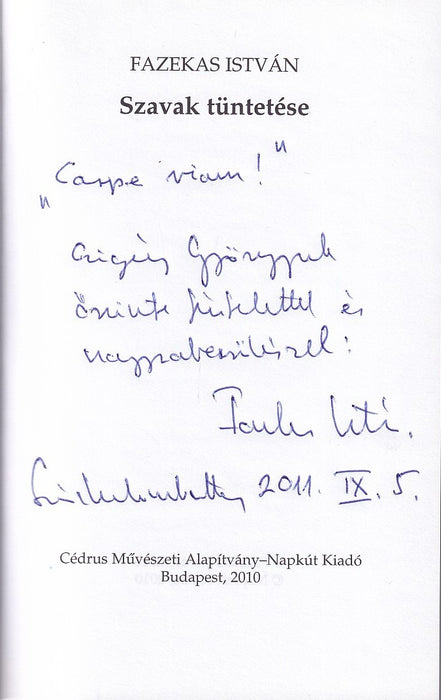 FAZEKAS ISTVÁN
Szavak tüntetése
„Carpe viam!"
Györgynek
őszinte tisztelettel és
nagyrabecsüléssel:
2011. IX. 5.
Cédrus Művészeti Alapítvány–Napkút Kiadó
Budapest, 2010